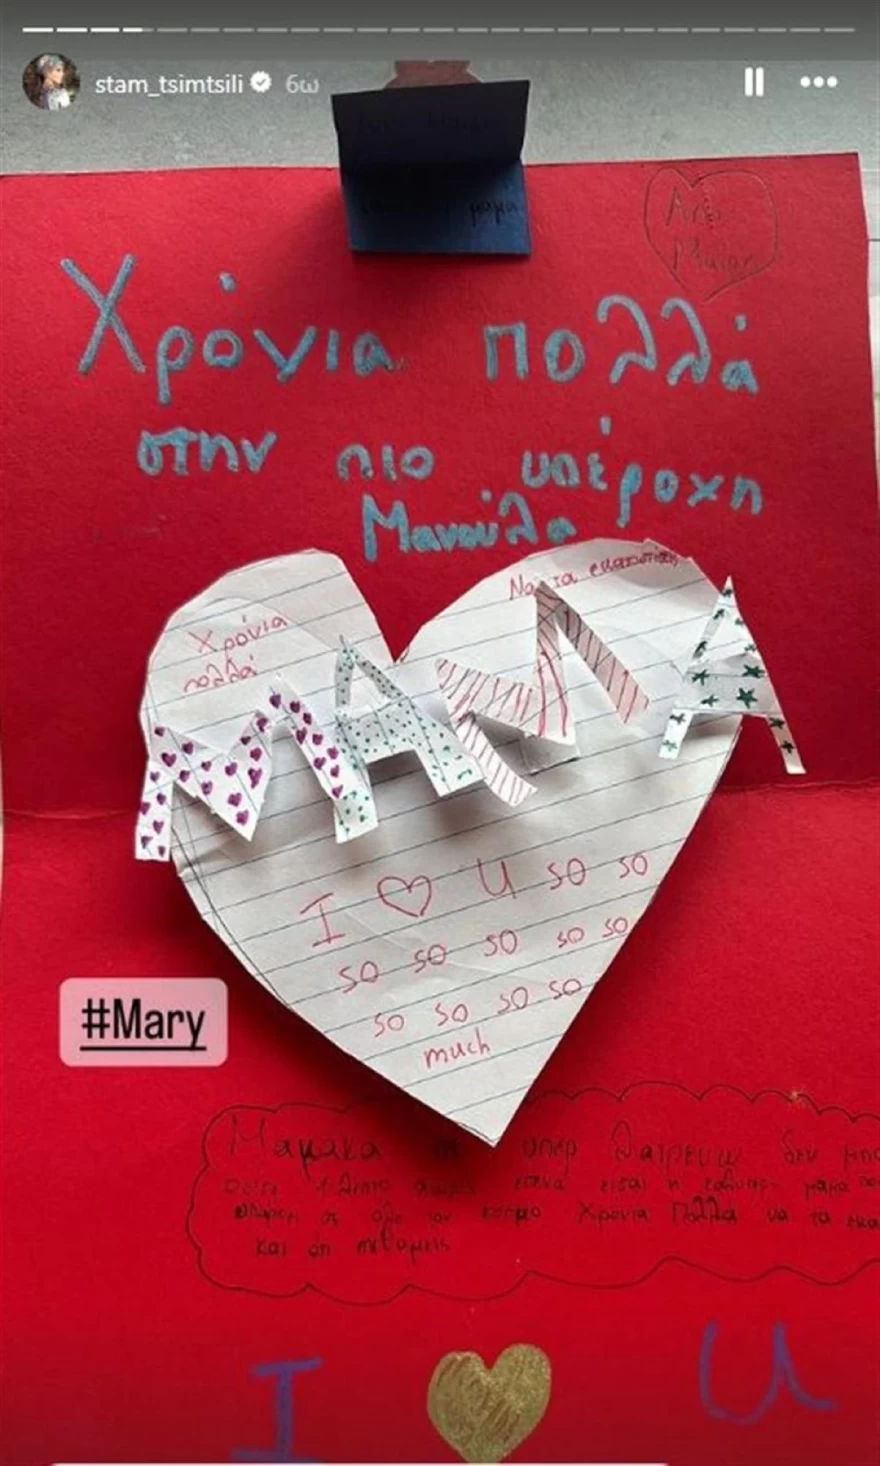 stam_tsimtsili 6ω
μαμά
Από
Χρόνια πολλά
στην πιο υπέροχη
Μανούλα
Χρόνια
πολλά
Να τα εκατοστήσεις
ΜΑΜΑ
I ♡ U so so
so so so so so
so so so so
much
#Mary
Μαμάκα σε υπερ λατρεύω δεν
1 λεπτό χωρίς εσένα είσαι η καλύτερη μαμά
σε όλο τον κόσμο Χρόνια Πολλά να τα
και ότι
I U